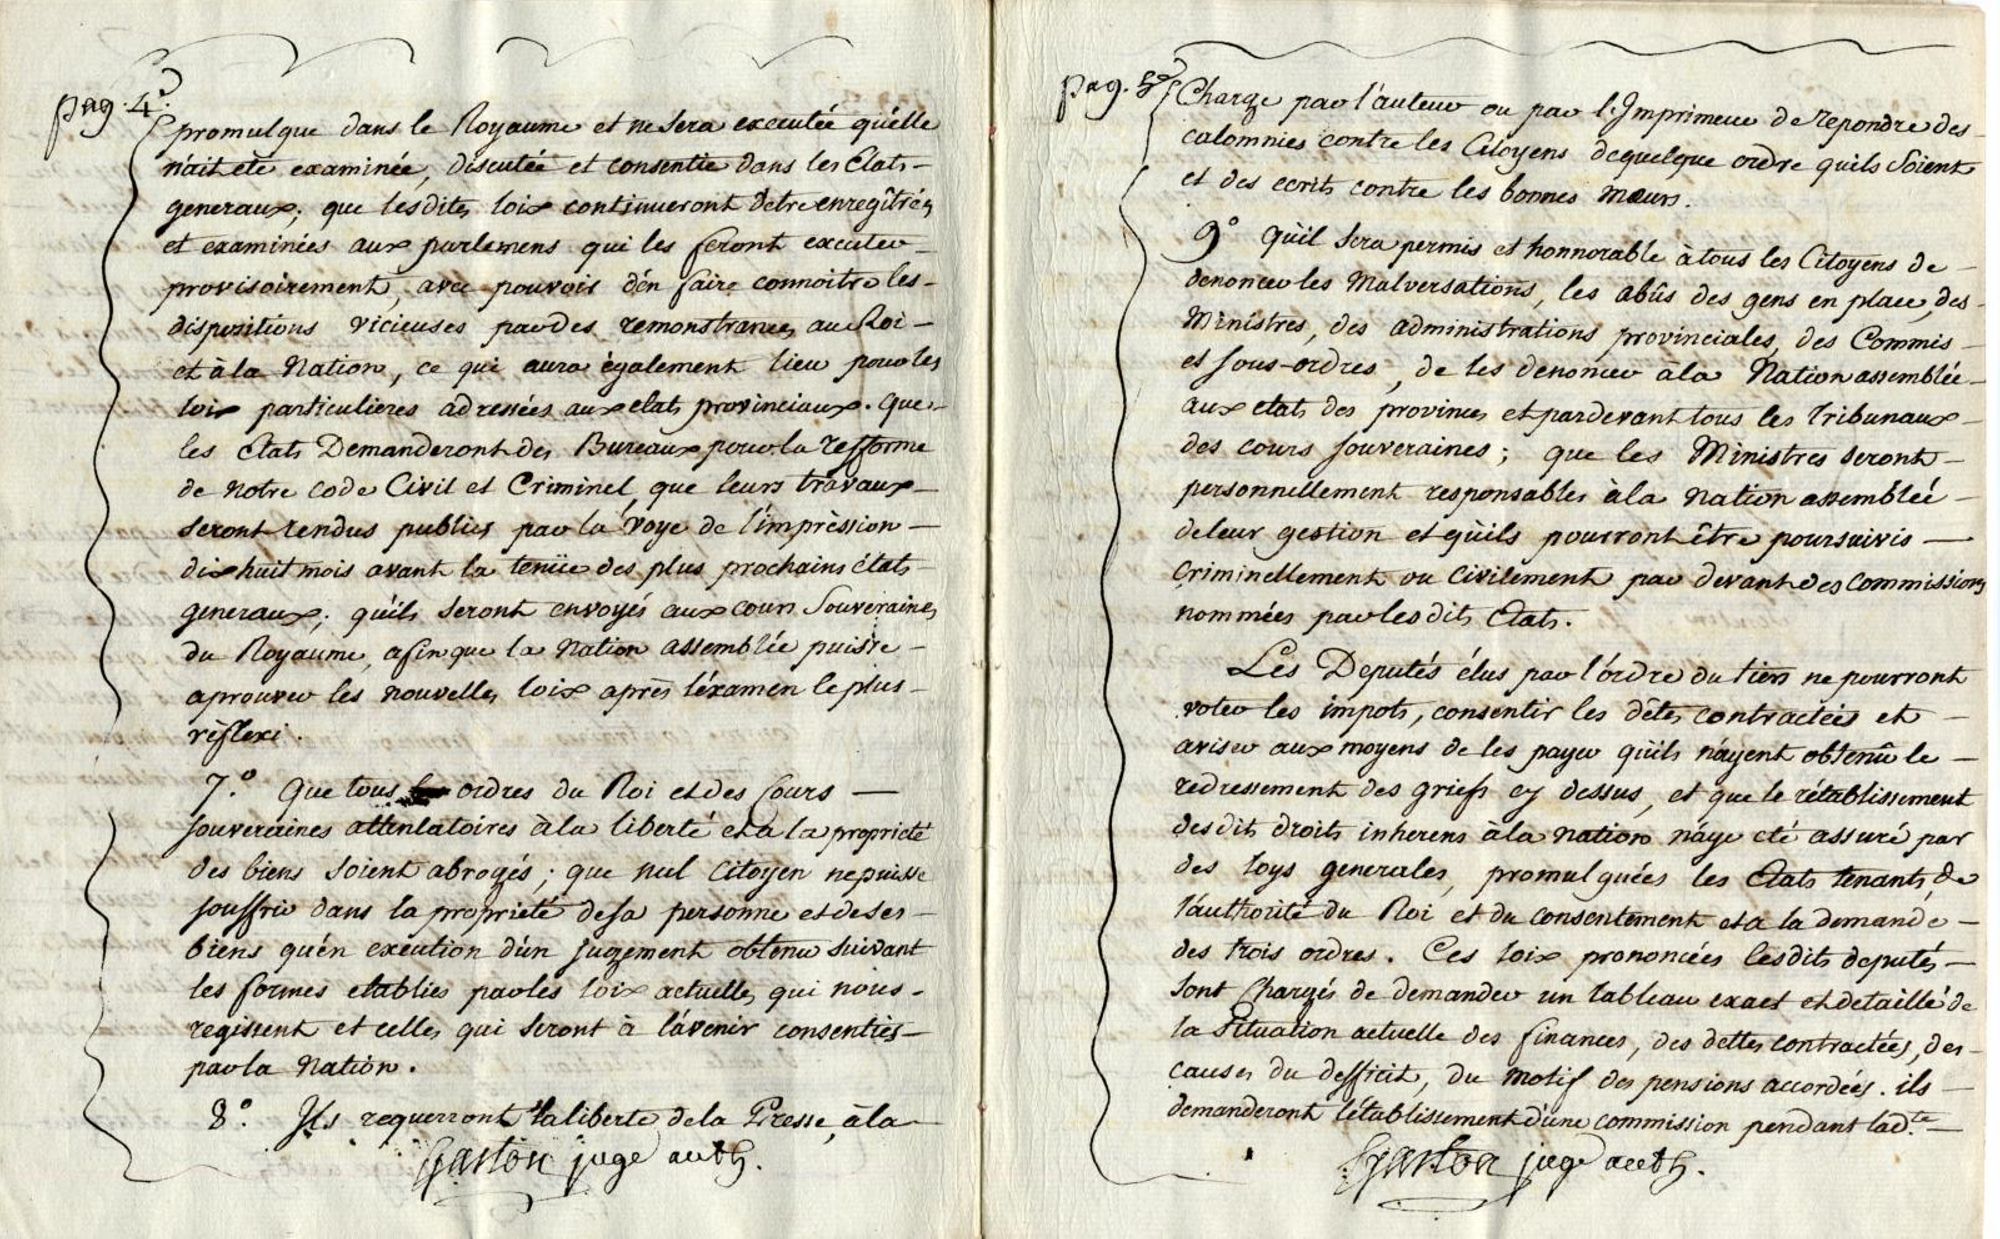 pag. 4e.
promulgue dans le Royaume et ne sera executée qu'elle
n'ait eté examinée, discutée et consentie dans les Etats-
generaux; que lesdites loix continueront d'etre enregîtrées
et examinées aux parlemens qui les feront executer-
provisoirement, avec pouvoir d'én faire connoitre les-
dispositions vicieuses par des remonstrances au Roi-
et à la Nation, ce qui aura également lieu pour les
loix particulieres adressées aux etats provinciaux. que-
les Etats Demanderont des Bureaux pour la refforme
de notre code Civil et Criminel, que leurs travaux-
seront rendus publics par la voye de l'impréssion-
dix huit mois avant la tenüe des plus prochains états
generaux; qu'ils seront envoyés aux cours Souveraines
du Royaume, afin que la Nation assemblée puisse-
aprouver les nouvelles loix aprés l'éxamen le plus-
réflexi.
7.° Que tous ordres du Roi et des Cours-
souveraines attentatoires à la liberté et a la proprieté
des biens soient abrogés; que nul Citoyen ne puisse
souffrir dans la proprieté de sa personne et de ses-
biens qu'én exeution d'ùn jugement obtenu suivant
les formes etablies par les loix actuelles qui nous-
regissent et celles qui seront à l'ávenir consenties-
par la Nation.
8.° Ils requerront la liberte de la Presse, à la-
Gaston juge auth.
pag. 5e
Charge par l'auteur ou par l'Imprimeur de repondre des-
calomnies contre les Citoyens de quelque ordre qu'ils soient
et des ecrits contre les bonnes mœurs.
9° Qu'il sera permis et honnorable à tous les Citoyens de-
denoncer les Malversations, les abûs des gens en place, des-
Ministres, des administrations provinciales, des Commis-
et sous-ordres, de les denoncer à la Nation assemblée-
aux etats des provinces et pardevant tous les Tribunaux-
des cours souveraines; que les Ministres seront-
personnellement responsables à la Nation assemblée-
de leur gestion et qu'ils pourront être poursuivis-
Criminellement ou Civilement par devant des Commissions
nommées par lesdits Etats.
Les Deputés élus par l'órdre du tiers ne pourront
voter les impots, consentir les dêtes contractées et-
aviser aux moyens de les payer qu'ils n'ayent obtenû le-
redressement des griefs cy dessus, et que le rétablissement
desdits droits inherens à la nation n'aye eté assuré par
des loys generales, promulguées les Etats tenants, de
l'authorité du Roi et du consentement et a la demande-
des trois ordres. Ces loix prononcées lesdits deputés-
sont chargés de demander un tableau exact et detaillé de
la situation actuelle des finances, des dettes contractées, des-
causes du defficit, du motif des pensions accordées. ils-
demanderont l'établissement d'ùne commission pendant lad.te-
Gaston juge auth.